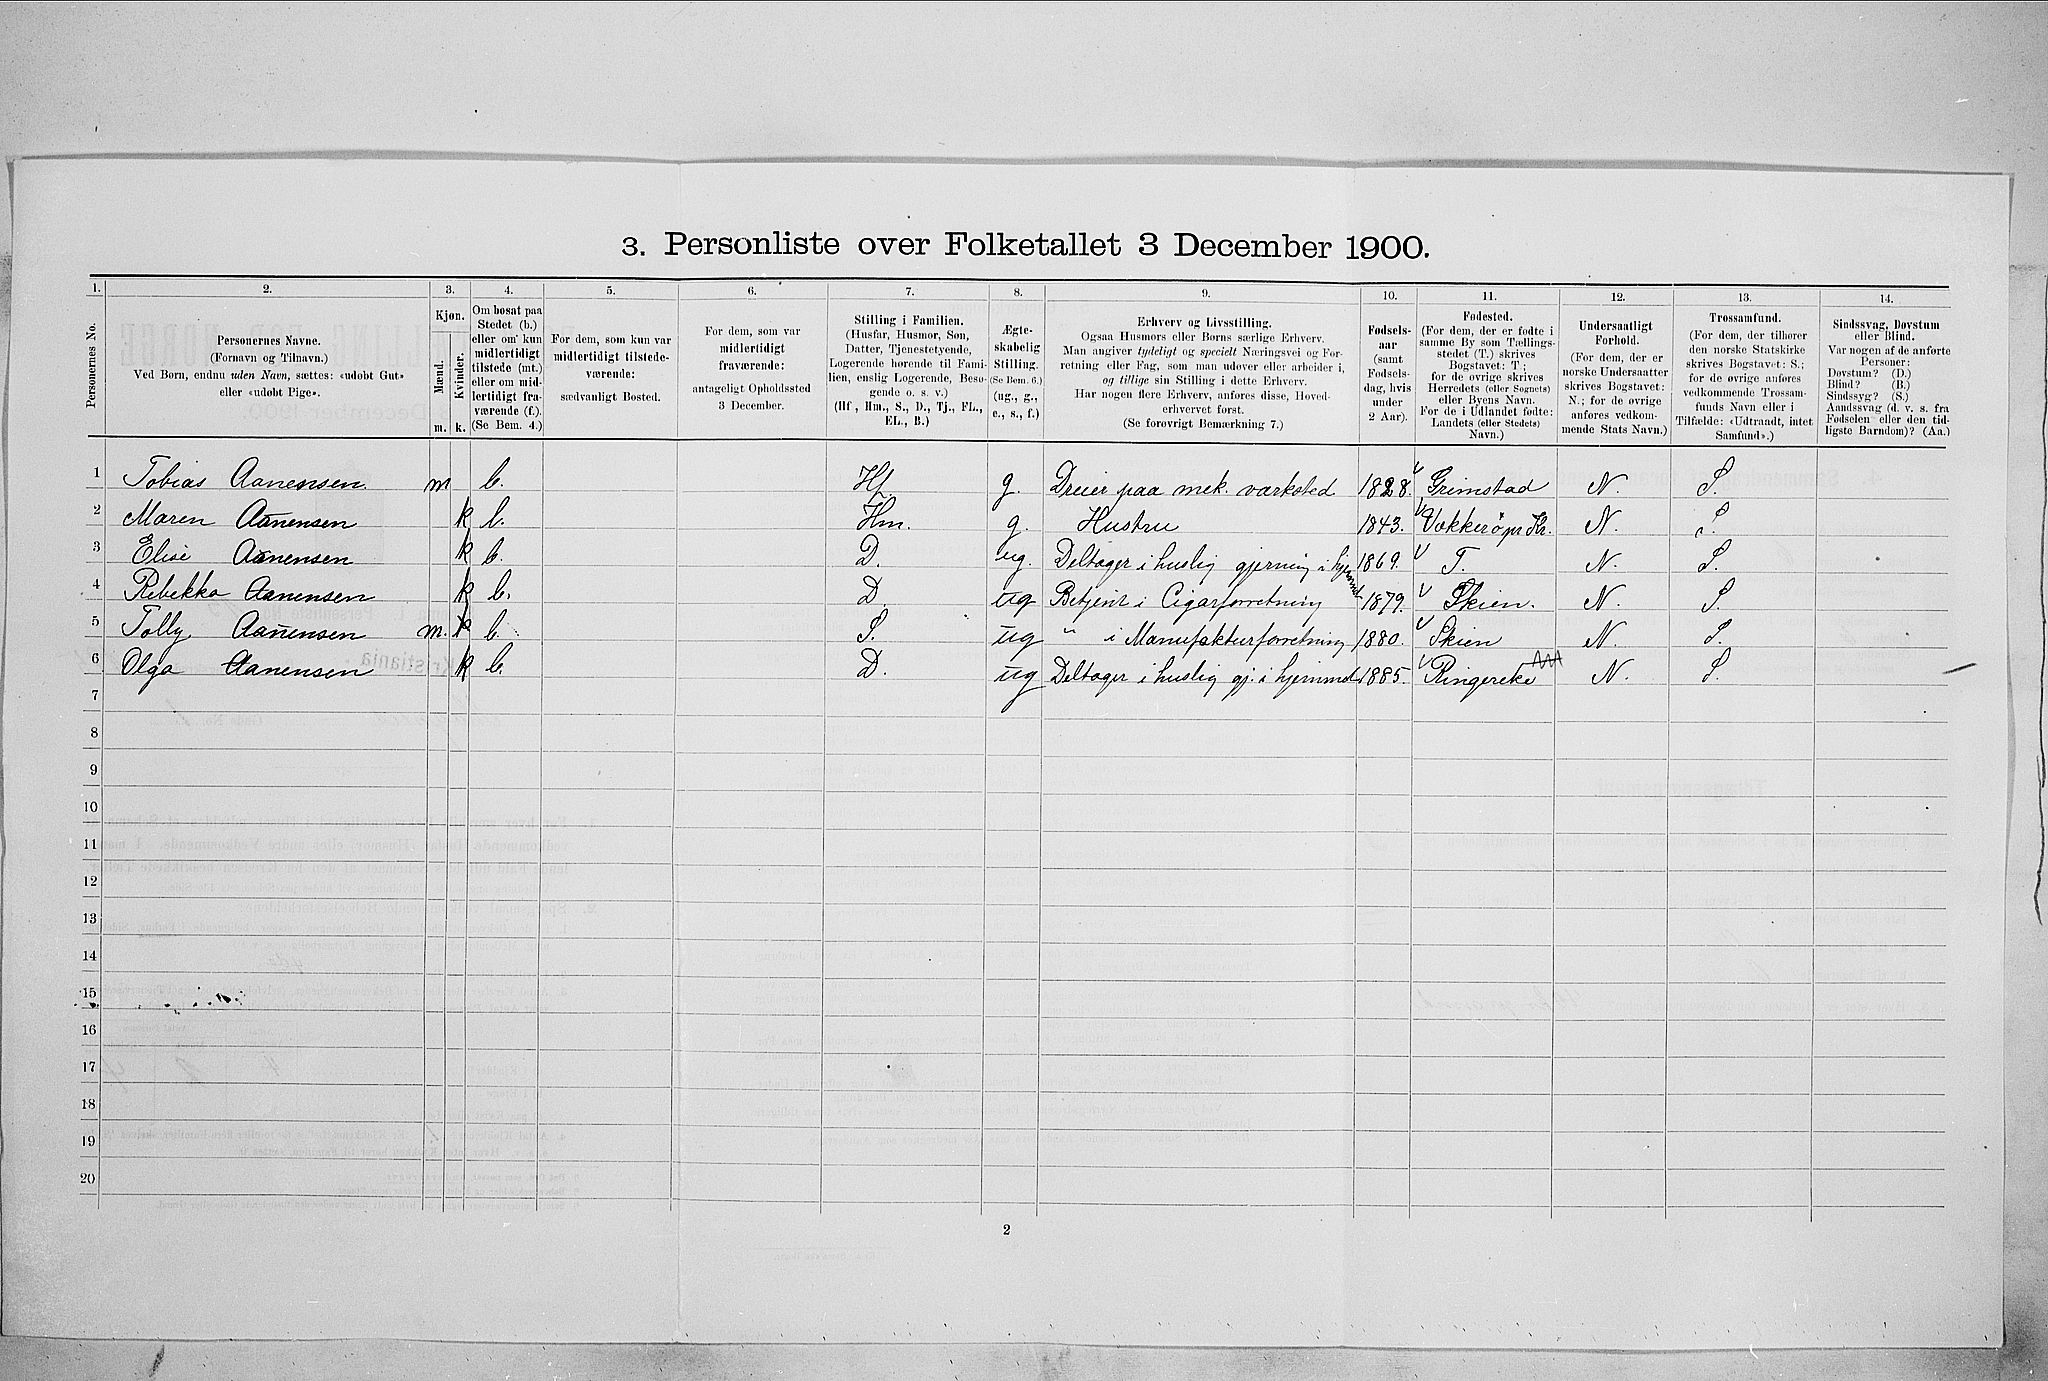 3. Personliste over Folketallet 3 December 1900.
1. 2. 3. 4. 5. 6. 7. 8. 9. 10. 11. 12. 13. 14.
Personernes No.
Personernes Navne.
(Fornavn og Tilnavn.)
Ved Børn, endnu uden Navn, sættes: «udøbt Gut»
eller «udøbt Pige».
Kjøn.
Mænd.
Kvinder.
m. k.
Om bosat paa
Stedet (b.)
eller om kun
midlertidigt
tilstede (mt.)
eller om mid-
lertidigt fra-
værende (f.).
(Se Bem. 4.)
For dem, som kun var
midlertidigt tilstede-
værende:
sædvanligt Bosted.
For dem, som var
midlertidigt
fraværende:
antageligt Opholdssted
3 December.
Stilling i Familien.
(Husfar, Husmor, Søn,
Datter, Tjenestetyende,
Logerende hørende til Fami-
lien, enslig Logerende, Besø-
gende o. s. v.)
(Hf., Hm., S., D., Tj., FL.,
EL., B.)
Ægte-
skabelig
Stilling.
(Se Bem. 6.)
(ug., g.,
e., s., f.)
Erhverv og Livsstilling.
Ogsaa Husmors eller Børns særlige Erhverv.
Man angiver tydeligt og specielt Næringsvei og For-
retning eller Fag, som man udøver eller arbeider i,
og tillige sin Stilling i dette Erhverv.
Har nogen flere Erhverv, anføres disse, Hoved-
erhvervet først.
(Se forøvrigt Bemærkning 7.)
Fødsels-
aar
(samt
Fødsels-
dag, hvis
under
2 Aar).
Fødested.
(For dem, der er fødte i
samme By som Tællings-
stedet (T.) skrives
Bogstavet: T;
for de øvrige skrives
Herredets (eller Sognets)
eller Byens Navn.
For de i Udlandet fødte:
Landets (eller Stedets)
Navn.)
Undersaatligt
Forhold.
(For dem, der er
norske Undersaatter
skrives Bogstavet:
N.; for de øvrige
anføres vedkom-
mende Stats Navn.)
Trossamfund.
(For dem, der tilhører
den norske Statskirke
skrives Bogstavet: S.;
for de øvrige anføres
vedkommende Trossam-
funds Navn eller i
Tilfælde: «Udtraadt, intet
Samfund».)
Sindssvag, Døvstum
eller Blind.
Var nogen af de anførte
Personer:
Døvstum? (D.)
Blind? (B.)
Sindssyg? (S.)
Aandssvag (d. v. s. fra
Fødselen eller den tid-
ligste Barndom)? (Aa.)
1 Tobias Aanensen m b. Hf g. Dreier paa mek. værksted 1828. Grimstad N. S.
2 Maren Aanensen k b. Hm. g. Hustru 1843. Vækkerö pr Kr. N. S.
3 Elise Aanensen k b. D. ug. Deltager i huslig gjerning i hjemmet 1869. T. N. S.
4 Rebekka Aanensen k b. D. ug Betjent i Cigarforretning 1879. Skien. N. S.
5 Tolly Aanensen m. k b. S. ug " i Manufakturforretning 1880. Skien N. S.
6 Olga Aanensen k b. D. ug Deltager i huslig gj. i hjemmet 1885. Ringerike N. S.
7
8
9
10
11
12
13
14
15
16
17
18
19
20
2